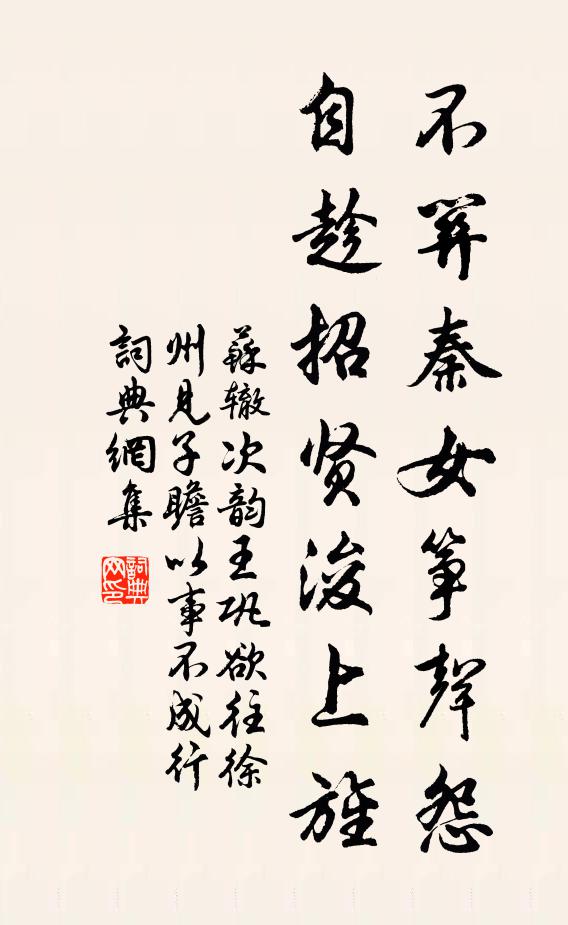 不笄秦女筝聲怨
自趁招贤浚上旌
蘇辙次韵王巩欲往徐
州見子瞻以事不成行
詞典網集
詞典网印